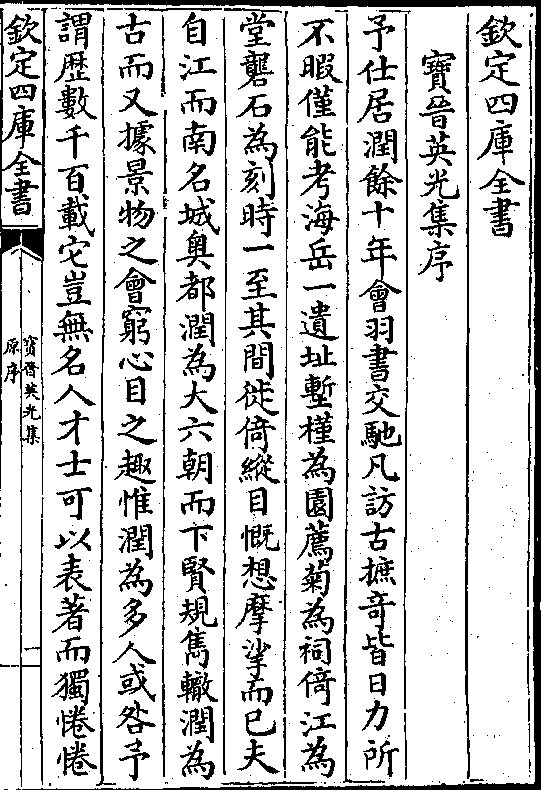 欽定四庫全書
寶晉英光集序
予仕居潤餘十年會羽書交馳凡訪古摭竒皆日力所
不暇僅能考海岳一遺址塹槿為園薦菊為祠倚江為
堂礱石為刻時一至其間徙倚縱目慨想摩挲而已夫
自江而南名城奥都潤為大六朝而下賢規雋轍潤為
古而又據景物之會窮心目之趣惟潤為多人或咎予
謂歴數千百載它豈無名人才士可以表著而獨惓惓
欽定四庫全書
寳晉英光集
原序
一